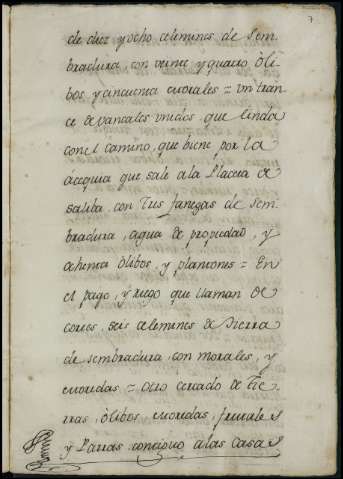 7
de diez y ocho celemines de Sem-
bradura, con veinte y quatro Oli-
bos y cinquenta morales = Un tran-
ce de vancales unidos que linda
con el camino, que biene por la
acequia que sale a la Placeta de
con tres fanegas de sem-
bradura, agua de propiedad, y
ochenta Olibos, y plantones = En
el pago, y riego que llaman de
seis celemines de Tierra
de sembradura con morales, y
= otro cercado de Tie-
rras, Olibos, frutales
y Parras contiguo a las Casas